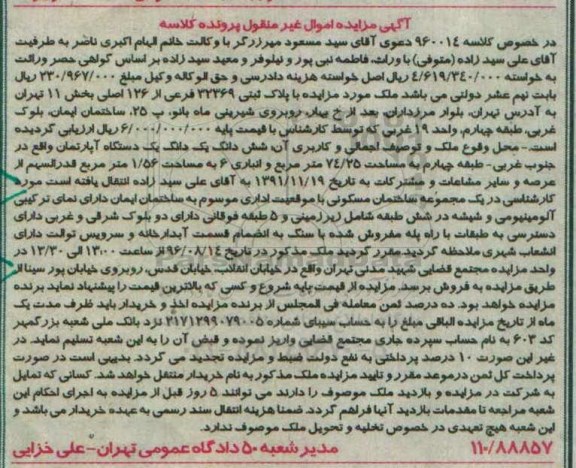 آگهی مزایده اموال غیر منقول پرونده کلاسه
در خصوص کلاسه ۹۶۰۰۱۴ دعوی آقای سید مسعود مهرزرگر با وکالت خانم الهام اکبری ناضر به طرفیت
آقای علی سید زاده (متوفی) با وراث، فاطمه نبی پور و نیلوفر و معید سید زاده بر اساس گواهی حصر وراثت
به خواسته ۴/۶۱۹/۳۴۰/۰۰۰ ریال اصل خواسته هزینه دادرسی و حق الوکاله وکیل مبلغ ۲۳۰/۹۶۷/۰۰۰ ریال
بابت نیم عشر دولتی می باشد ملک مورد مزایده با پلاک ثبتی ۳۲۳۶۹ فرعی از ۱۲۶ اصلی بخش ۱۱ تهران
به آدرس تهران، بلوار مرزداران، بعد از خ بهار، روبروی شیرینی ماه بانو، پ ۲۵، ساختمان ایمان، بلوک
غربی، طبقه چهارم، واحد ۱۹ غربی که توسط کارشناس با قیمت پایه ۶/۰۰۰/۰۰۰/۰۰۰ ریال ارزیابی گردیده
است.- محل وقوع ملک و توصیف اجمالی و کاربری آن: شش دانگ یک دانگ یک دستگاه آپارتمان واقع در
جنوب غربی- طبقه چهارم به مساحت ۷۴/۲۵ متر مربع و انباری ۶ به مساحت ۱/۵۶ متر مربع قدرالسهم از
عرصه و سایر مشاعات و مشترکات به تاریخ ۱۳۹۱/۱۱/۱۹ به آقای علی سید زاده انتقال یافته است مورد
کارشناسی در یک مجموعه ساختمان مسکونی با موقعیت اداری موسوم به ساختمان ایمان دارای نمای ترکیبی
آلومینیومی و شیشه در شش طبقه شامل زیرزمینی و ۵ طبقه فوقانی دارای دو بلوک شرقی و غربی دارای
دسترسی به طبقات با راه پله مفروش شده با سنگ به انضمام قسمت آبدارخانه و سرویس توالت دارای
انشعاب شهری ملاحظه گردید.مقرر گردید ملک مذکور در تاریخ ۹۶/۰۸/۱۴ از ساعت ۱۳:۰۰ الی ۱۳/۳۰ در
واحد مزایده مجتمع قضایی شهید مدنی تهران واقع در خیابان انقلاب خیابان قدس، روبروی خیابان پور سینا از
طریق مزایده به فروش برسد. مزایده از قیمت پایه شروع و کسی که بالاترین قیمت را پیشنهاد نماید برنده
مزایده خواهد بود. ده درصد ثمن معامله فی المجلس از برنده مزایده اخذ و خریدار باید ظرف مدت یک
ماه از تاریخ مزایده الباقی مبلغ را به حساب سیبای شماره ۲۱۷۱۲۹۹۰۷۹۰۰۵ نزد بانک ملی شعبه بزرگمهر
کد ۶۰۳ به نام حساب سپرده جاری مجتمع قضایی واریز نموده و قبض آن را به این شعبه تسلیم نماید. در
غیر این صورت ۱۰ درصد پرداختی به نفع دولت ضبط و مزایده تجدید می گردد. بدیهی است در صورت
پرداخت کل ثمن درموعد مقرر و تایید مزایده ملک مذکور به نام خریدار منتقل خواهد شد. کسانی که تمایل
به شرکت در مزایده و بازدید ملک موصوف را دارند می توانند ۵ روز قبل از مزایده به اجرای احکام این
شعبه مراجعه تا مقدمات بازدید آنها فراهم گردد. ضمنا هزینه انتقال سند رسمی به عهده خریدار می باشد و
این شعبه هیچ تعهدی در خصوص تخلیه و تحویل ملک موصوف ندارد.
۱۱۰/۸۸۸۵۷ مدیر شعبه ۵۰ دادگاه عمومی تهران- علی خزایی